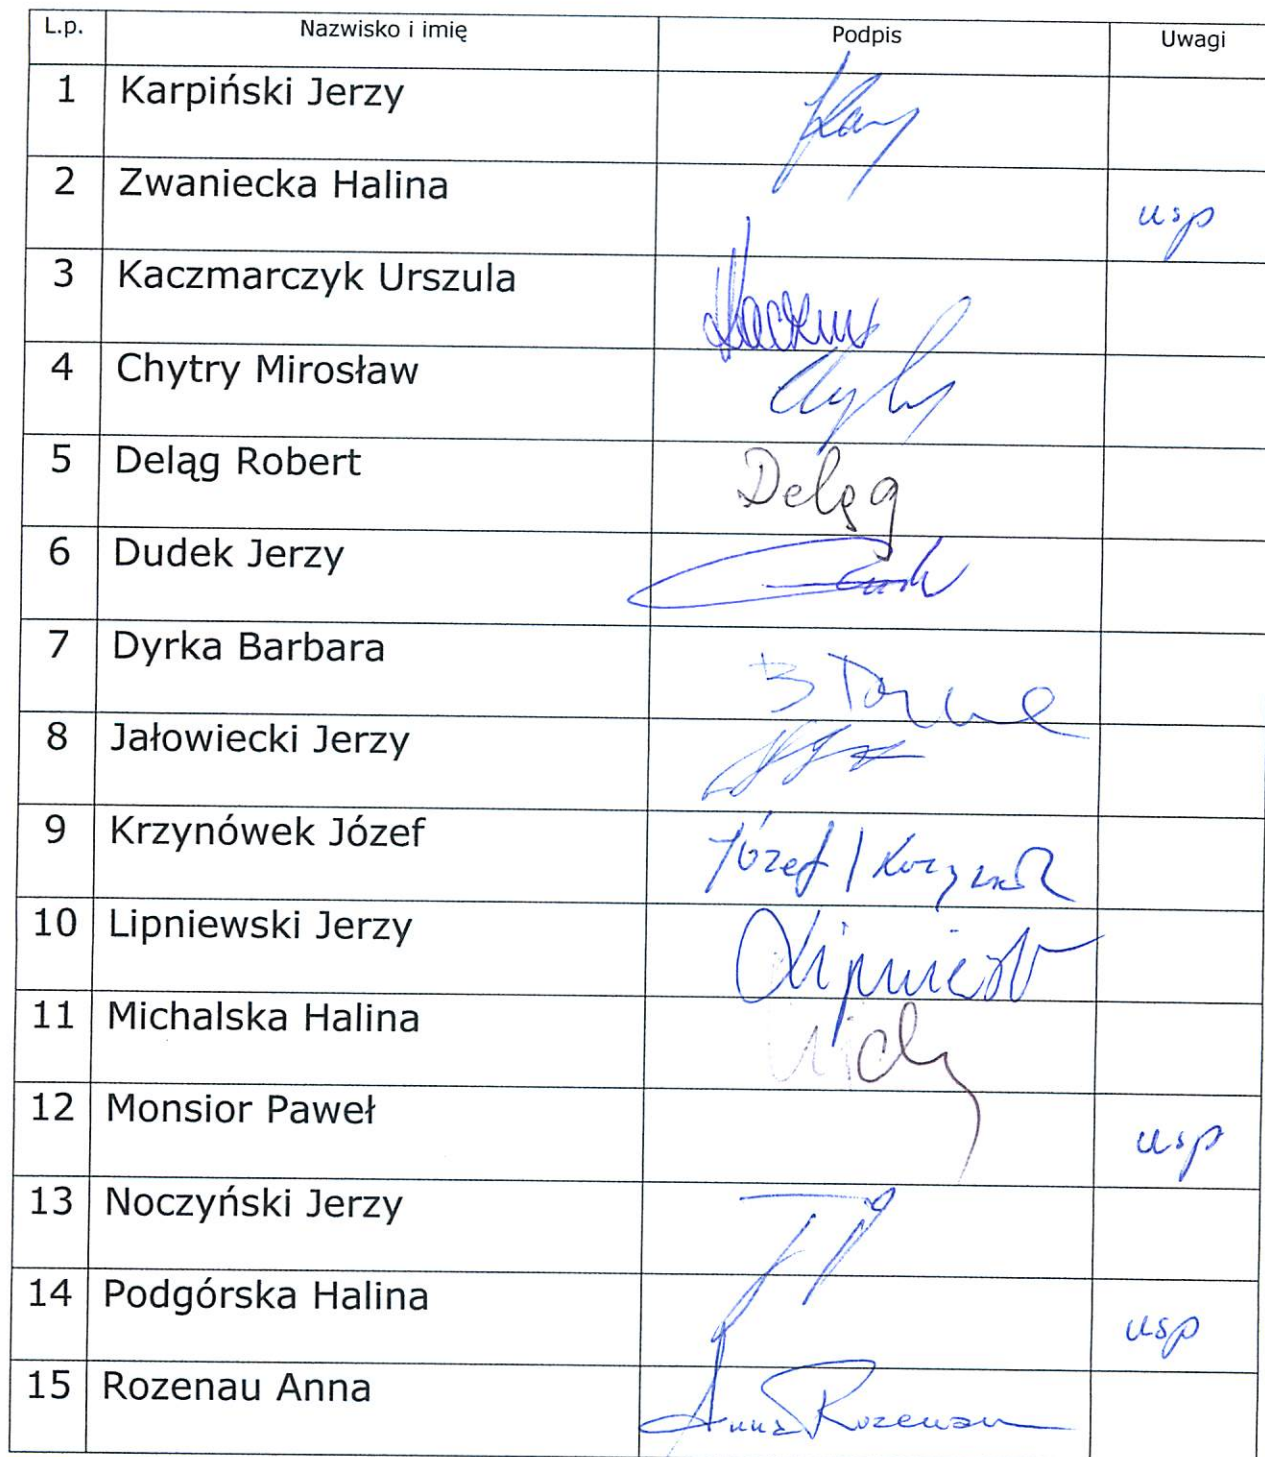 L.p. Nazwisko i imię Podpis Uwagi
1 Karpiński Jerzy
2 Zwaniecka Halina usp
3 Kaczmarczyk Urszula
4 Chytry Mirosław
5 Deląg Robert Deląg
6 Dudek Jerzy
7 Dyrka Barbara
8 Jałowiecki Jerzy
9 Krzynówek Józef Józef
10 Lipniewski Jerzy
11 Michalska Halina
12 Monsior Paweł usp
13 Noczyński Jerzy
14 Podgórska Halina usp
15 Rozenau Anna Anna Rozenau